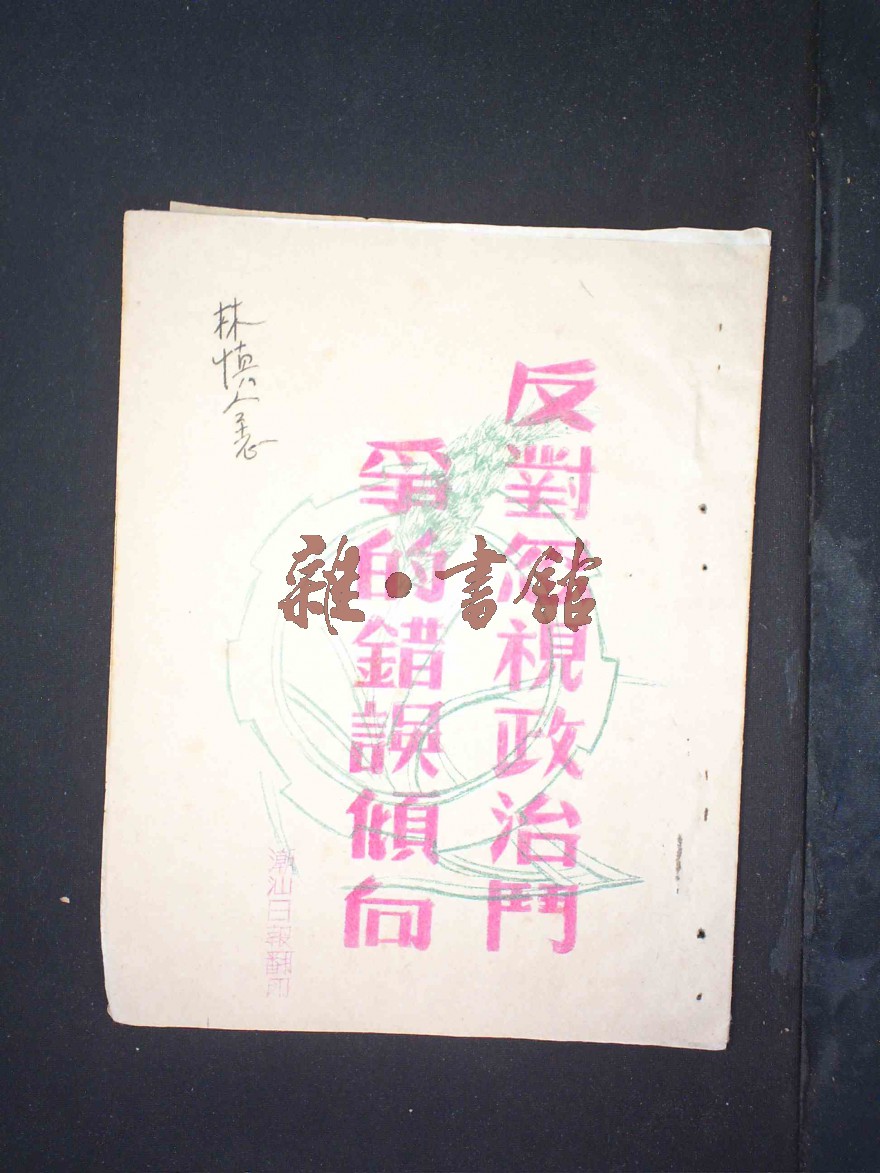 反對忽視政治鬥
爭的錯誤傾向
雜·書館
林慎
潮汕日報翻印